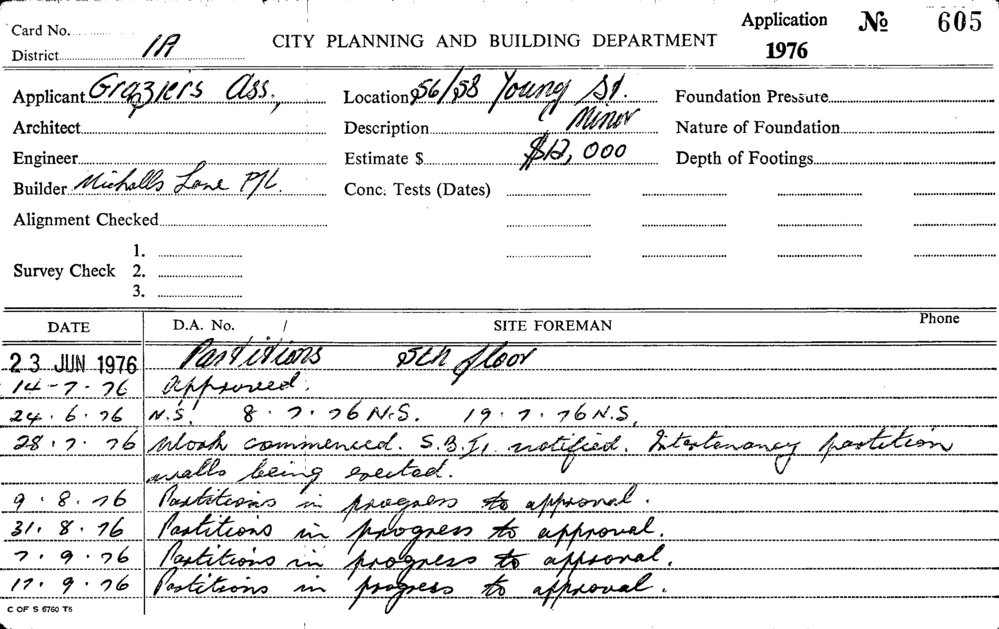 Card No.
District 1A
CITY PLANNING AND BUILDING DEPARTMENT
Application No 605
1976
Applicant Grazier's Ass.,
Location 56/58 Young St.
Foundation Pressure
Architect
Description Minor
Nature of Foundation
Engineer
Estimate $ $12,000
Depth of Footings
Builder Lane P/L.
Conc. Tests (Dates)
Alignment Checked
Survey Check
1.
2.
3.
DATE D.A. No. / SITE FOREMAN Phone
23 JUN 1976 Partitions 5th floor
14-7-76 Approved.
24.6.76 N.S. 8.7.76 N.S. 19.7.76 N.S.
28.7.76 Work commenced. S.B.I. notified. Intertenancy partition
walls being erected.
9.8.76 Partitions in progress to approval.
31.8.76 Partitions in progress to approval.
7.9.76 Partitions in progress to approval.
17.9.76 Partitions in progress to approval.
C OF S 6760 T6